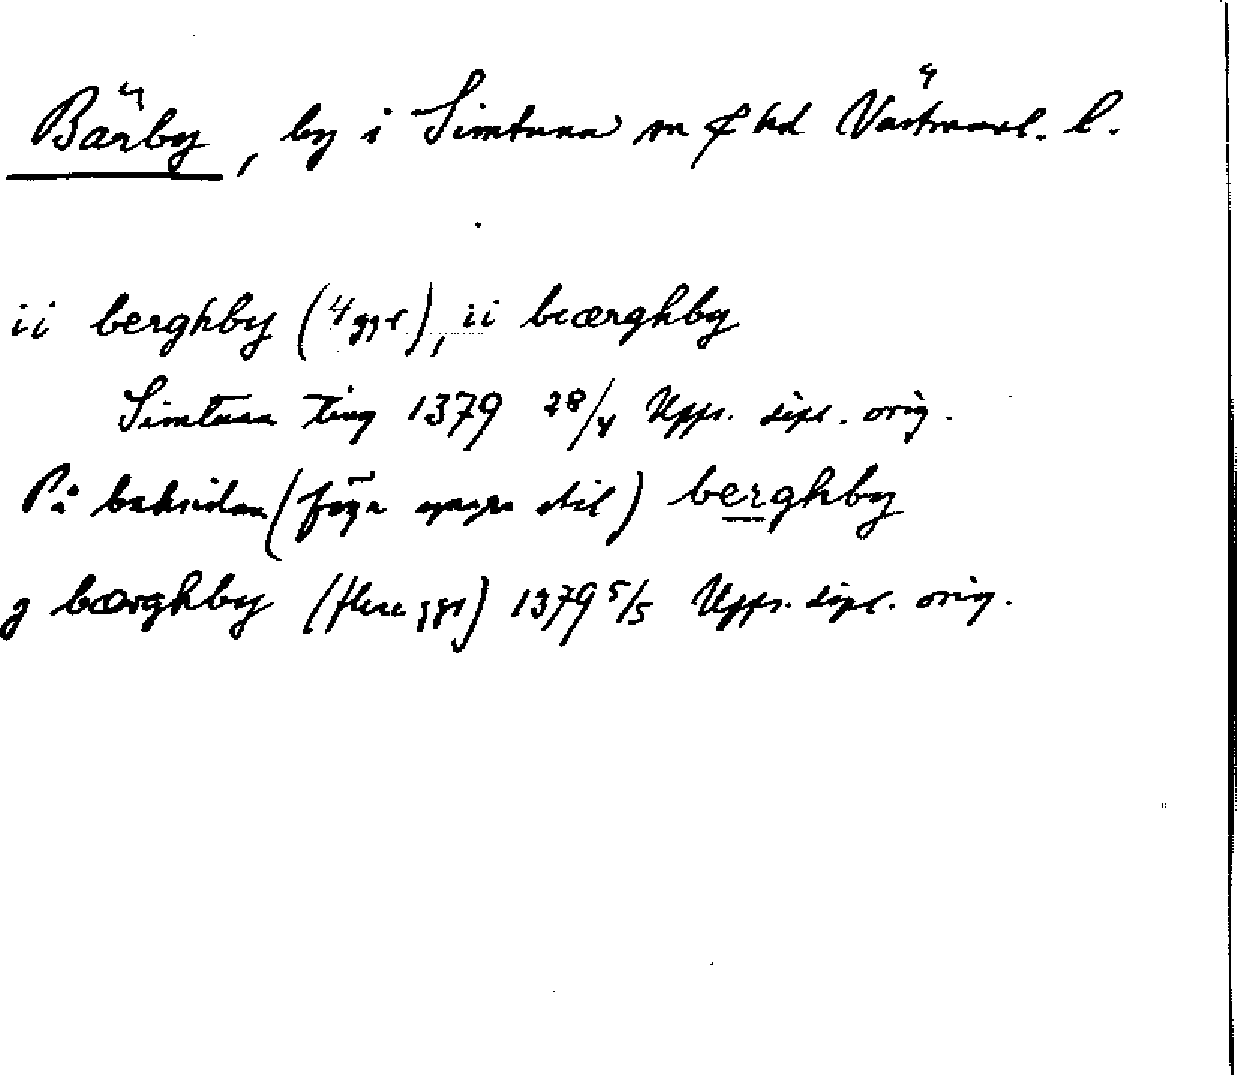 Bärby, by i Simtuna sn o hd Västmanl. l.
ii berghby (4 ggr), ii bærghby
Simtuna ting 1379 28/4 Upps. dipl. orig.
På baksidan (föga yngre stil) berghby
j bærghby (flere ggr) 1379 5/5 Upps. dipl. orig.